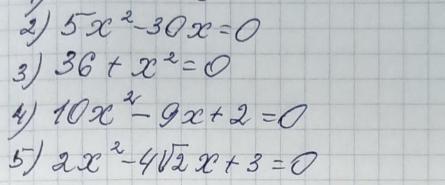 2) 5x²-30x=0
3) 36+x²=0
4) 10x²-9x+2=0
5) 2x²-4√2x+3=0